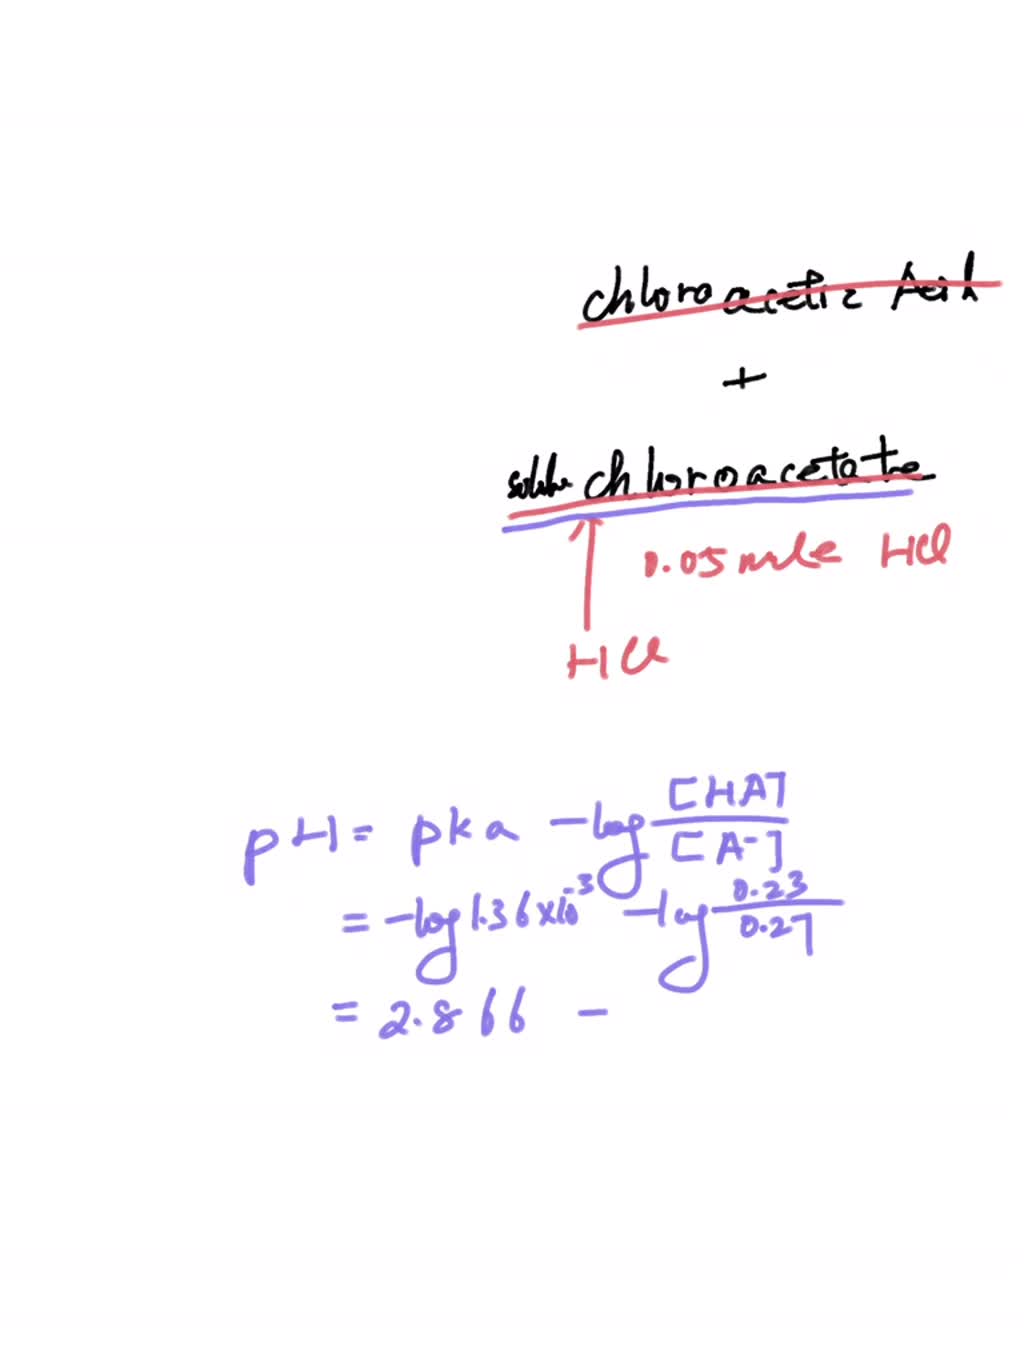 chloroacetic Acid
+
chloroacetate
0.05 mole HCl
HCl
pH = pka - log [HA] / [A-]
= -log 1.36 × 10^-3 - log 0.23 / 0.27
= 2.866 -